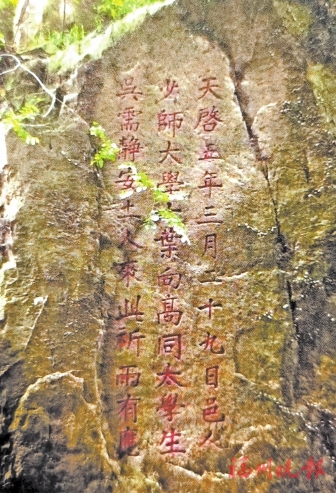 天啓五年三月二十九日邑人
少師大學士葉向高同太學生
吳需靜安土人來此祈雨有應
福州晚报